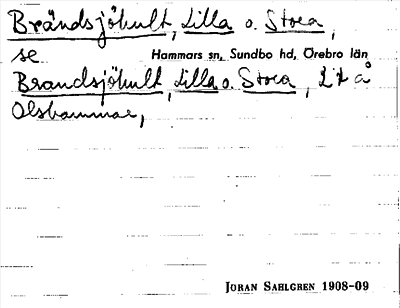 Brändsjöhult, Lilla o. Stora,
se Hammars sn, Sundbo hd, Örebro län
Brandsjöhult, Lilla o. Stora, Lt å
Olshammar,
JORAN SAHLGREN 1908-09